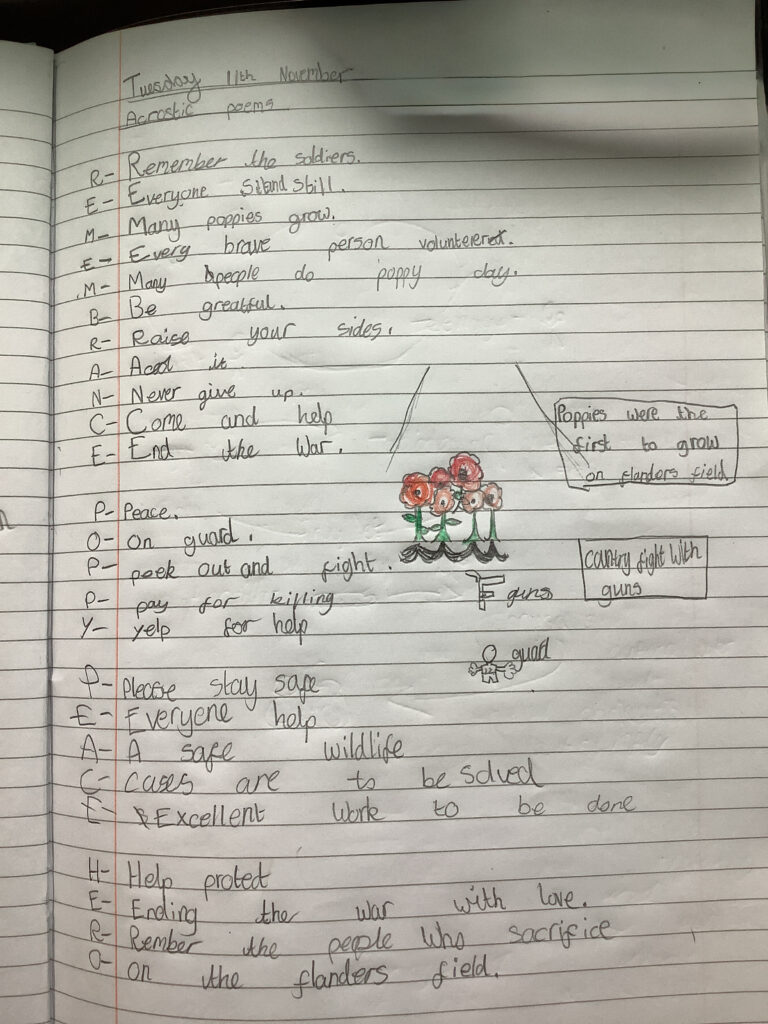 Tuesday 11th November
Acrostic poems
R- Remember the soldiers.
E- Everyone stand still.
M- Many poppies grow.
E- Every brave person volunteeret.
M- Many people do poppy day.
B- Be greatful.
R- Raise your sides.
A- it
N- Never give up.
C- Come and help
E- End the war.
Poppies were the
first to grow
on flanders field
P- Peace.
O- On guard.
P- peek out and fight.
P- pay for killing
Y- Yelp for help
guns
Country fight with
guns
guard
P- Please stay safe
E- Everyene help
A- A safe wildlife
C- Cases are to be solved
E- Excellent work to be done
H- Help protect
E- Ending the war with love.
R- Rember the people who sacrifice
O- on the flanders field.